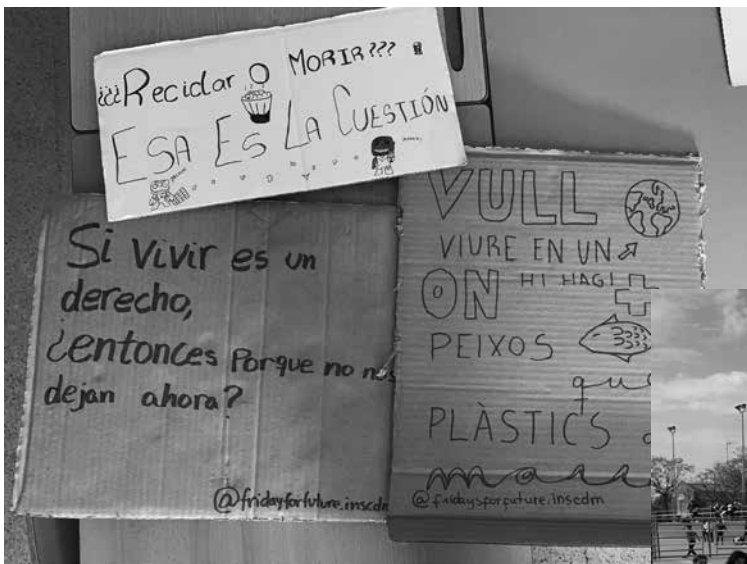 ¿¿¿Reciclar O MORIR???
ESA ES LA CUESTIÓN
Si vivir es un
derecho,
¿entonces Porque no nos
dejan ahora?
@fridayforfuture.inscdm
VULL
VIURE EN UN
ON HI HAGI +
PEIXOS
que
PLÀSTICS
@fridaysforfuture.inscdm